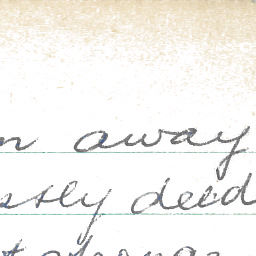 n away
stly deed